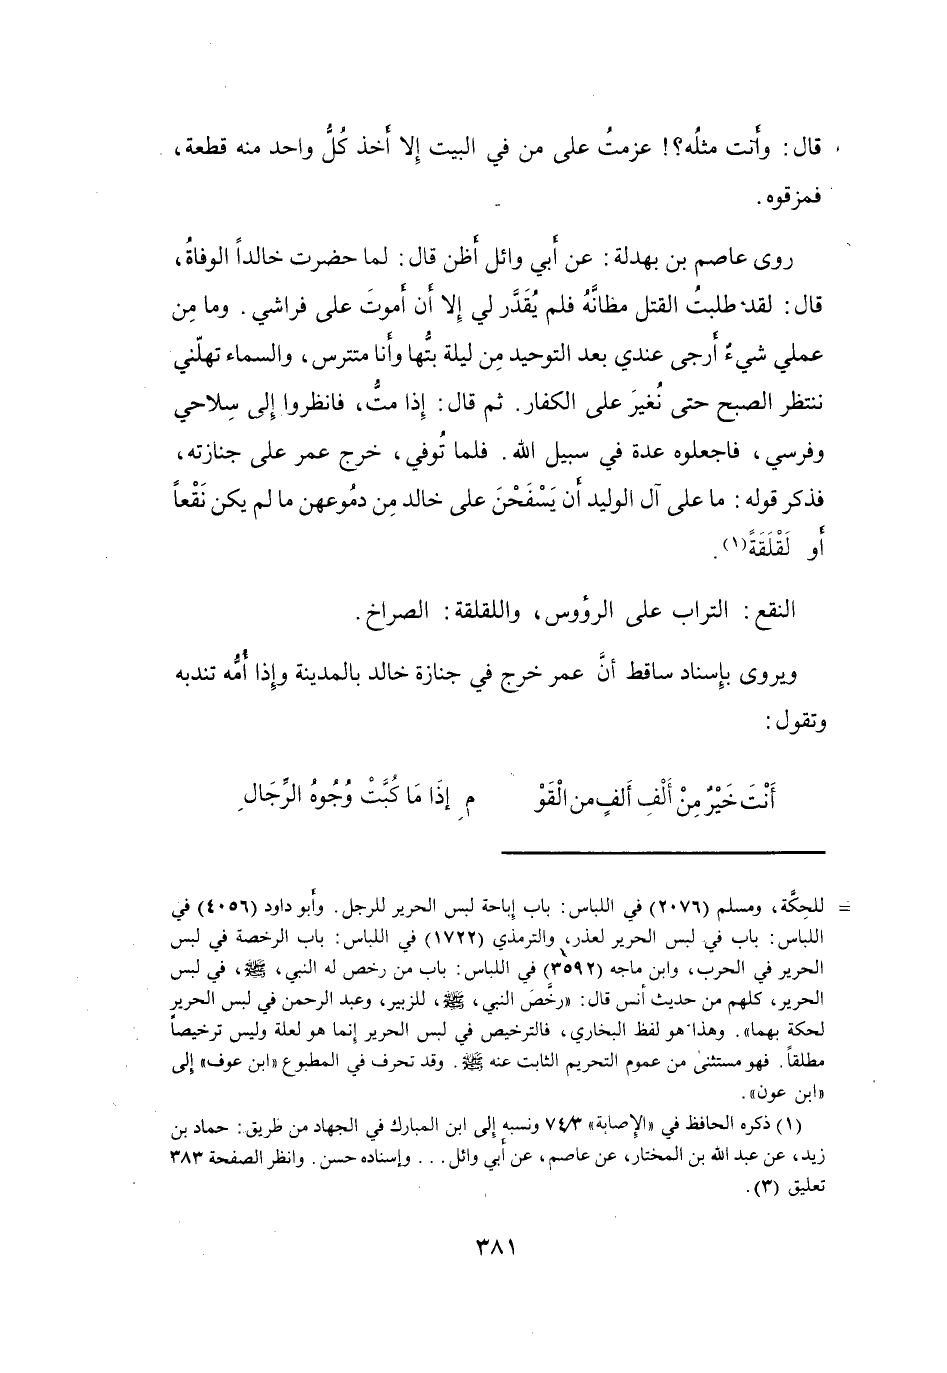 قال: وأَنت مثلُه؟! عزمتُ على من في البيت إلا أَخذ كُلُّ واحد منه قطعة،
فمزقوه.
روى عاصم بن بهدلة: عن أَبي وائل أَظن قال: لما حضرت خالداً الوفاةُ،
قال: لقد طلبتُ القتل مظانَّهُ فلم يُقَدَّر لي إلا أَن أَموتَ على فراشي. وما مِن
عملي شيءٌ أَرجى عندي بعد التوحيد مِن ليلة بتُّها وأَنا متترس، والسماء تهلّني
ننتظر الصبح حتى نُغيرَ على الكفار. ثم قال: إذا متُّ، فانظروا إلى سِلاحي
وفرسي، فاجعلوه عدة في سبيل الله. فلما تُوفي، خرج عمر على جنازته،
فذكر قوله: ما على آل الوليد أَن يَسْفَحْنَ على خالد مِن دمُوعهن ما لم يكن نَقْعاً
أَو لَقْلَقَةً(١).
النقع: التراب على الرؤوس، واللقلقة: الصراخ.
ويروى بإسناد ساقط أنَّ عمر خرج في جنازة خالد بالمدينة وإذا أُمُّه تندبه
وتقول:
أَنْتَ خَيْرٌ مِنْ أَلْفِ أَلفٍ من الْقَوْ مِ إذَا مَا كُبَّتْ وُجُوهُ الرِّجَالِ
= للحِكَّة، ومسلم (٢٠٧٦) في اللباس: باب إباحة لبس الحرير للرجل. وأَبو داود (٤٠٥٦) في
اللباس: باب في لبس الحرير لعذر، والترمذي (١٧٢٢) في اللباس: باب الرخصة في لبس
الحرير في الحرب، وابن ماجه (٣٥٩٢) في اللباس: باب من رخص له النبي، ﷺ، في لبس
الحرير، كلهم من حديث أنس قال: «رخَّصَ النبي، ﷺ، للزبير، وعبد الرحمن في لبس الحرير
لحكة بهما». وهذا هو لفظ البخاري، فالترخيص في لبس الحرير إنما هو لعلة وليس ترخيصاً
مطلقاً. فهو مستثنى من عموم التحريم الثابت عنه ﷺ. وقد تحرف في المطبوع «ابن عوف» إلى
«ابن عون».
(١) ذكره الحافظ في «الإصابة» ٧٤/٣ ونسبه إلى ابن المبارك في الجهاد من طريق: حماد بن
زيد، عن عبد الله بن المختار، عن عاصم، عن أبي وائل... وإسناده حسن. وانظر الصفحة ٣٨٣
تعليق (٣).
٣٨١